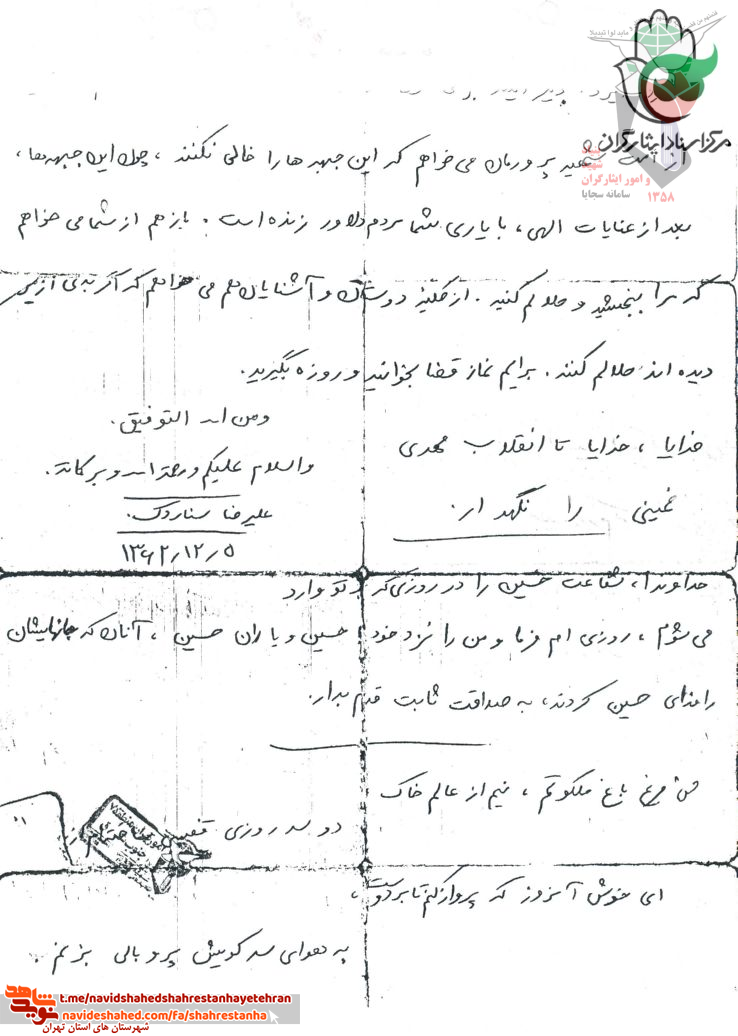 مرکز اسناد ایثارگران
شهید
و امور ایثارگران
سامانه سجایا
۱۳۵۸
از امت شهید پرورمان می خواهم که این جبهه ها را خالی نکنند ، چون این جبهه ها ،
بعد از عنایات الهی ، با یاری شما مردم دلاور زنده است . باز هم از شما می خواهم
که مرا ببخشید و حلالم کنید . از کلیهٔ دوستان و آشنایان هم می خواهم که اگر بدی از من
دیده اند حلالم کنند . برایم نماز قضا بخوانید و روزه بگیرید .
ومن الله التوفیق .
والسلام علیکم و رحمة الله و برکاته .
علیرضا
۱۳۶۲/۱۲/۵
خدایا ، خدایا تا انقلاب مهدی
خمینی را نگهدار .
خداوندا ، شفاعت حسین را در روزی که بر تو وارد
می شوم ، روزی ام فرما و من را نزد خود با حسین و یاران حسین ، آنان که جانهایشان
را فدای حسین کردند ، به صداقت ثابت قدم بدار .
من مرغ باغ ملکوتم ، نیم از عالم خاک
دو سه روزی قفسی
ای خوش آنروز که پرواز کنم تا بر دوست ،
به هوای سر کویش پر و بالی بزنم .
نوید شاهد
t.me/navidshahedshahrestanhayetehran
navideshahed.com/fa/shahrestanha
شهرستان های استان تهران